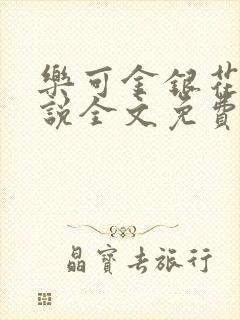 樂可金銀花
說全文免費
晶寶去旅行